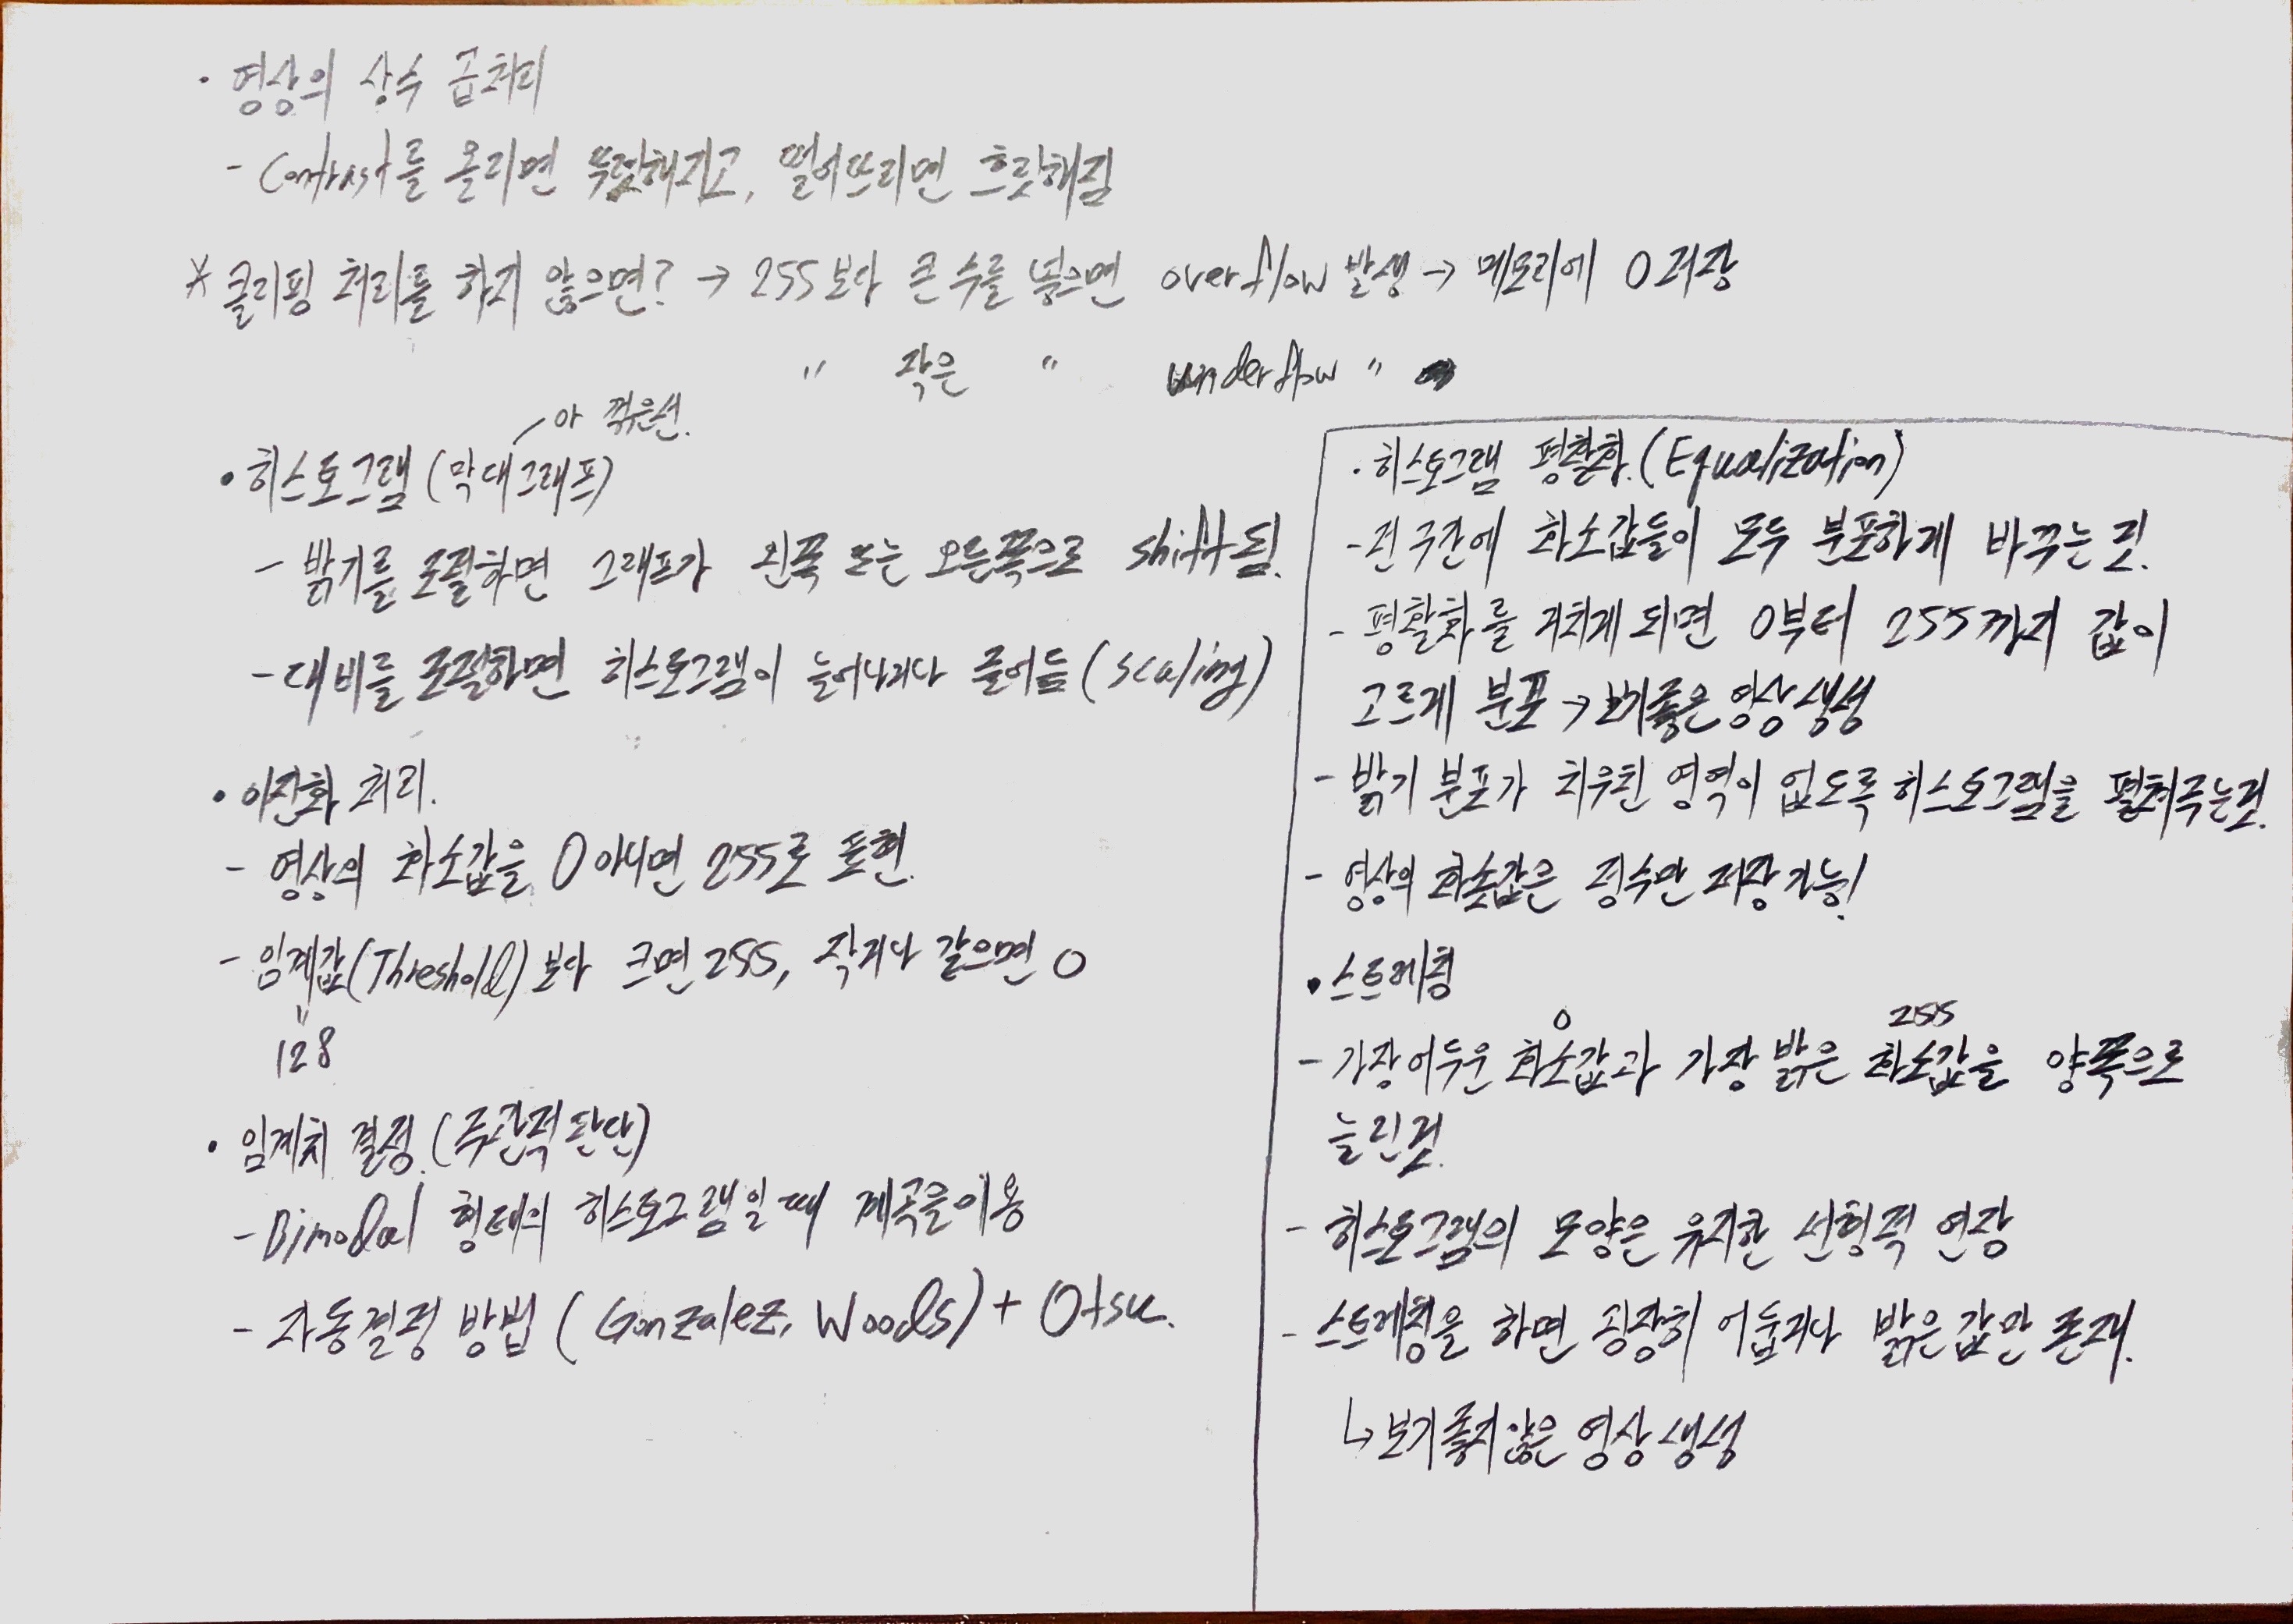 · 영상의 상수 곱처리
- Contrast를 올리면 뚜렷해지고, 떨어뜨리면 흐릿해짐
* 클리핑 처리를 하지 않으면? → 255보다 큰 수를 넣으면 overflow 발생 → 메모리에 0 저장
" 작은 " underflow "
아 꺾은선.
• 히스토그램 (막대그래프)
- 밝기를 조절하면 그래프가 왼쪽 또는 오른쪽으로 shift됨.
- 대비를 조절하면 히스토그램이 늘어나거나 줄어듦 (scaling)
• 이진화 처리.
- 영상의 화소값을 0 아니면 255로 표현.
- 임계값(Threshold)보다 크면 255, 작거나 같으면 0
"
128
• 임계치 결정. (주관적 판단)
- Bimodal 형태의 히스토그램일 때 계곡을 이용
- 자동결정 방법 (Gonzalez, Woods) + Otsu.
· 히스토그램 평활화. (Equalization)
- 전 구간에 화소값들이 모두 분포하게 바꾸는 것.
- 평활화를 거치게 되면 0부터 255까지 값이
고르게 분포 → 보기 좋은 영상 생성
- 밝기 분포가 치우친 영역이 없도록 히스토그램을 펼쳐주는 것.
- 영상의 화소값은 정수만 저장가능!
• 스트레칭
0 255
- 가장 어두운 화소값과 가장 밝은 화소값을 양쪽으로
늘린 것.
- 히스토그램의 모양은 유지한 선형적 연장
- 스트레칭을 하면 굉장히 어둡거나 밝은 값만 존재.
↳ 보기 좋지 않은 영상 생성